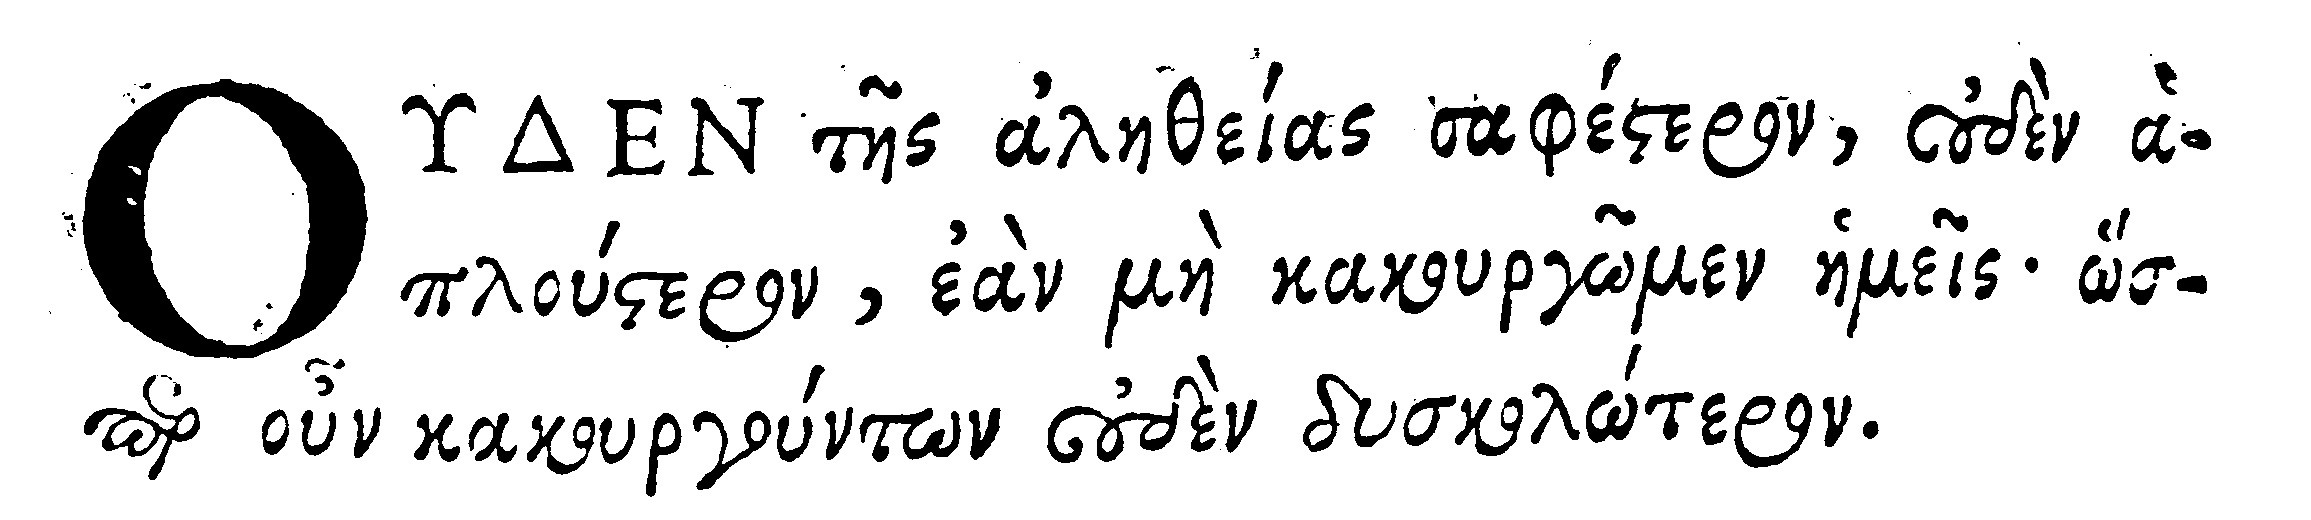 ΟΥΔΕΝ τῆς ἀληθείας σαφέϛερον, οὐδὲν ἁ-
πλούϛερον, ἐὰν μὴ κακουργῶμεν ἡμεῖς· ὥσ-
περ οὖν κακουργούντων οὐδὲν δυσκολώτερον.